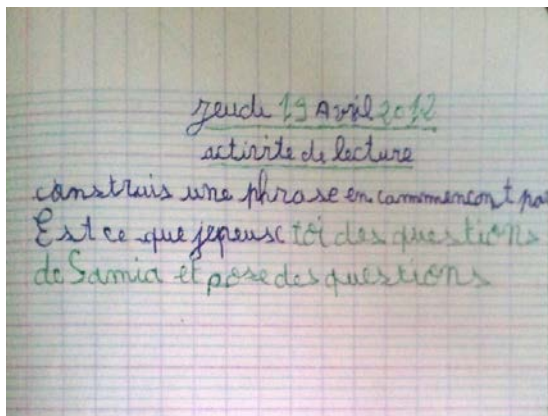 jeudi 19 Avril 2012
activite de lecture
construis une phrase en cammencont pa
Est ce que je peuse toi des questions
de Samia et pose des questions